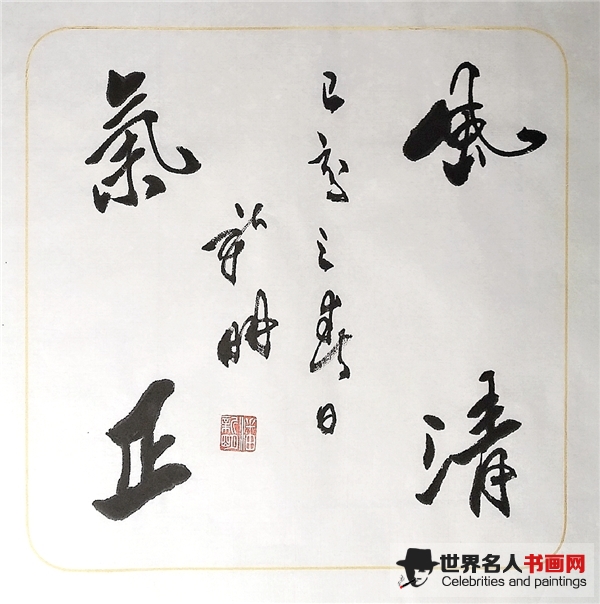 風清
己亥之春日
新明
氣正
世界名人书画网
Celebrities and paintings